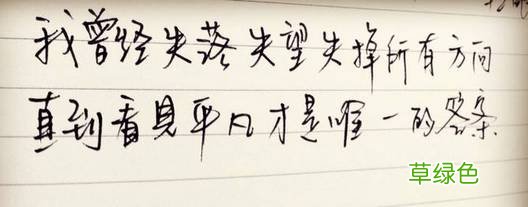 我曾经失落失望失掉所有方向
直到看見平凡才是唯一的答案
草绿色